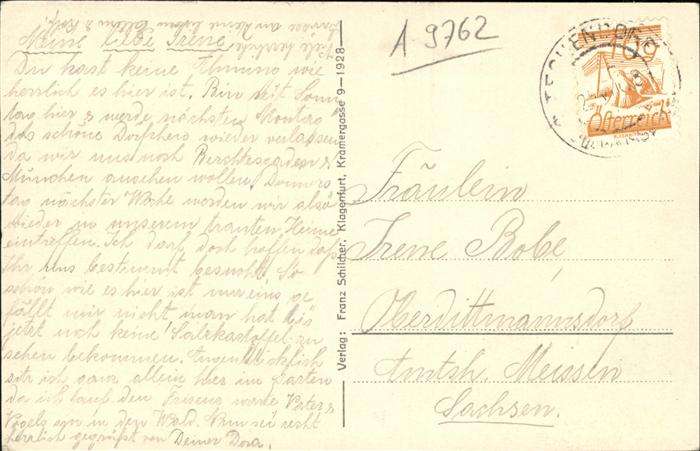 Meine liebe Irene
Du hast keine Ahnung wie
herrlich es hier ist. Bin seit Sonn
tag hier & werde nächsten Montag
das schöne Dorfchens wieder verlassen
da wir uns noch Berchtesgaden &
München ansehen wollen. Donners
tag nächster Woche werden wir also
wieder in unserem trauten Heime
eintreffen. Ich darf doch hoffen daß
Ihr uns bestimmt besucht. So
schön wie es hier ist nur eins ge
fällt mir nicht man hat bis
jetzt noch keine Salzkartoffel zu
sehen bekommen. Augenblicklich
sitz ich ganz allein hier im Garten
da ich auf den
Vogels in den Wald. Nun sei recht
herzlich gegrüßt von Deiner Dora.
Verlag: Franz Schilcher, Klagenfurt, Kramergasse 9 — 1928
A 9762
Österreich
Fräulein
Irene Bobe,
Oberdittmannsdorf
Amtsh. Meissen
Sachsen.